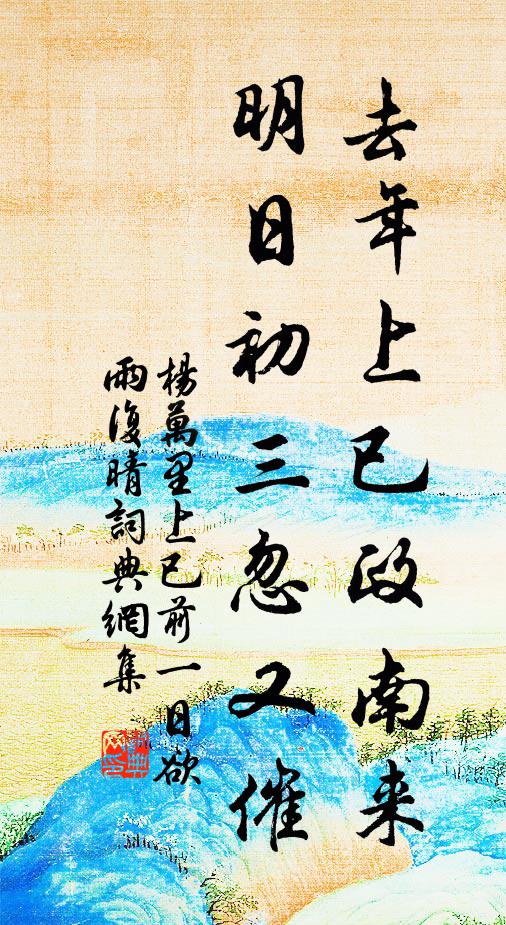 去年上巳政南来
明日初三忽又催
楊萬里上巳前一日欲
雨復晴詞典網集